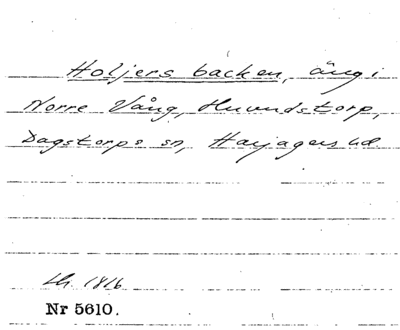 Holjers backen, äng i
Norre Vång, Huvudstorp,
Dagstorps sn, Harjagers hd
Lh. 1816
Nr 5610.